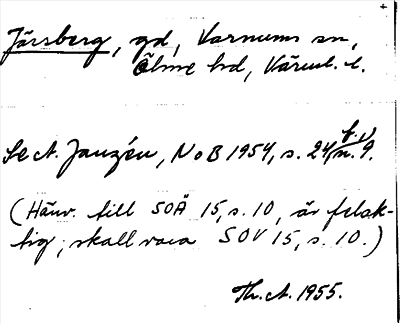 Järsberg, gd, Varnums sn,
Ölme hd, Värml. l.
Se A. Janzén, NoB 1954, s. 24 f. o. n. 9.
(Hänv. till SOÄ 15, s. 10, är felak-
tig; skall vara SOV 15, s. 10.)
Th. A. 1955.